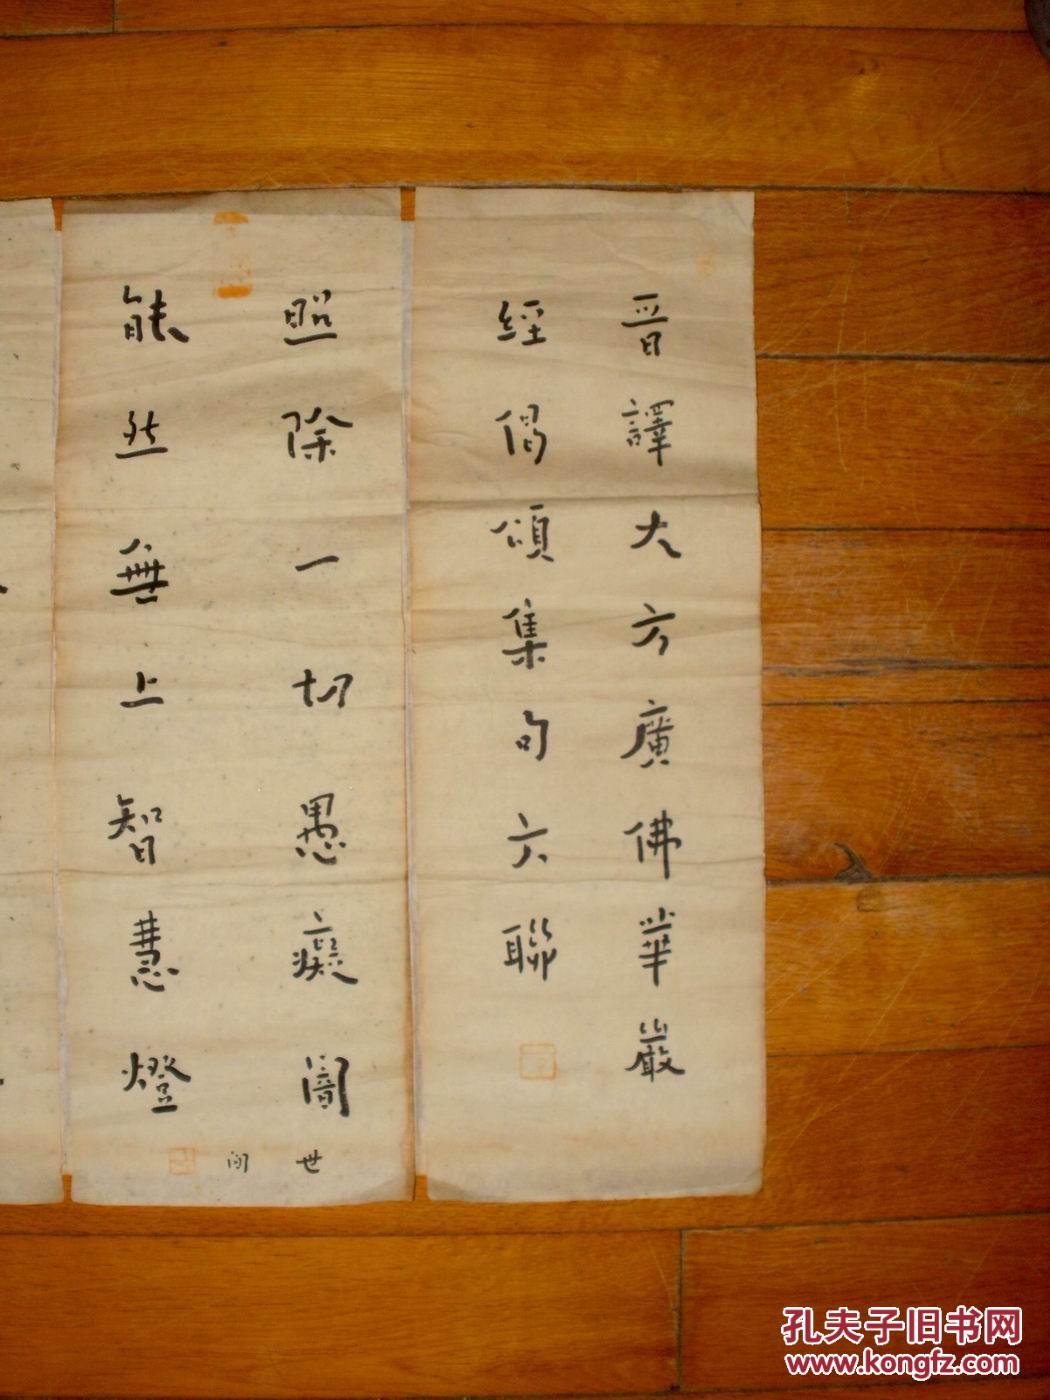 晉譯大方廣佛華嚴
經偈頌集句六聯
照除一切愚癡闇
能然無上智慧燈
世間
孔夫子旧书网
www.kongfz.com